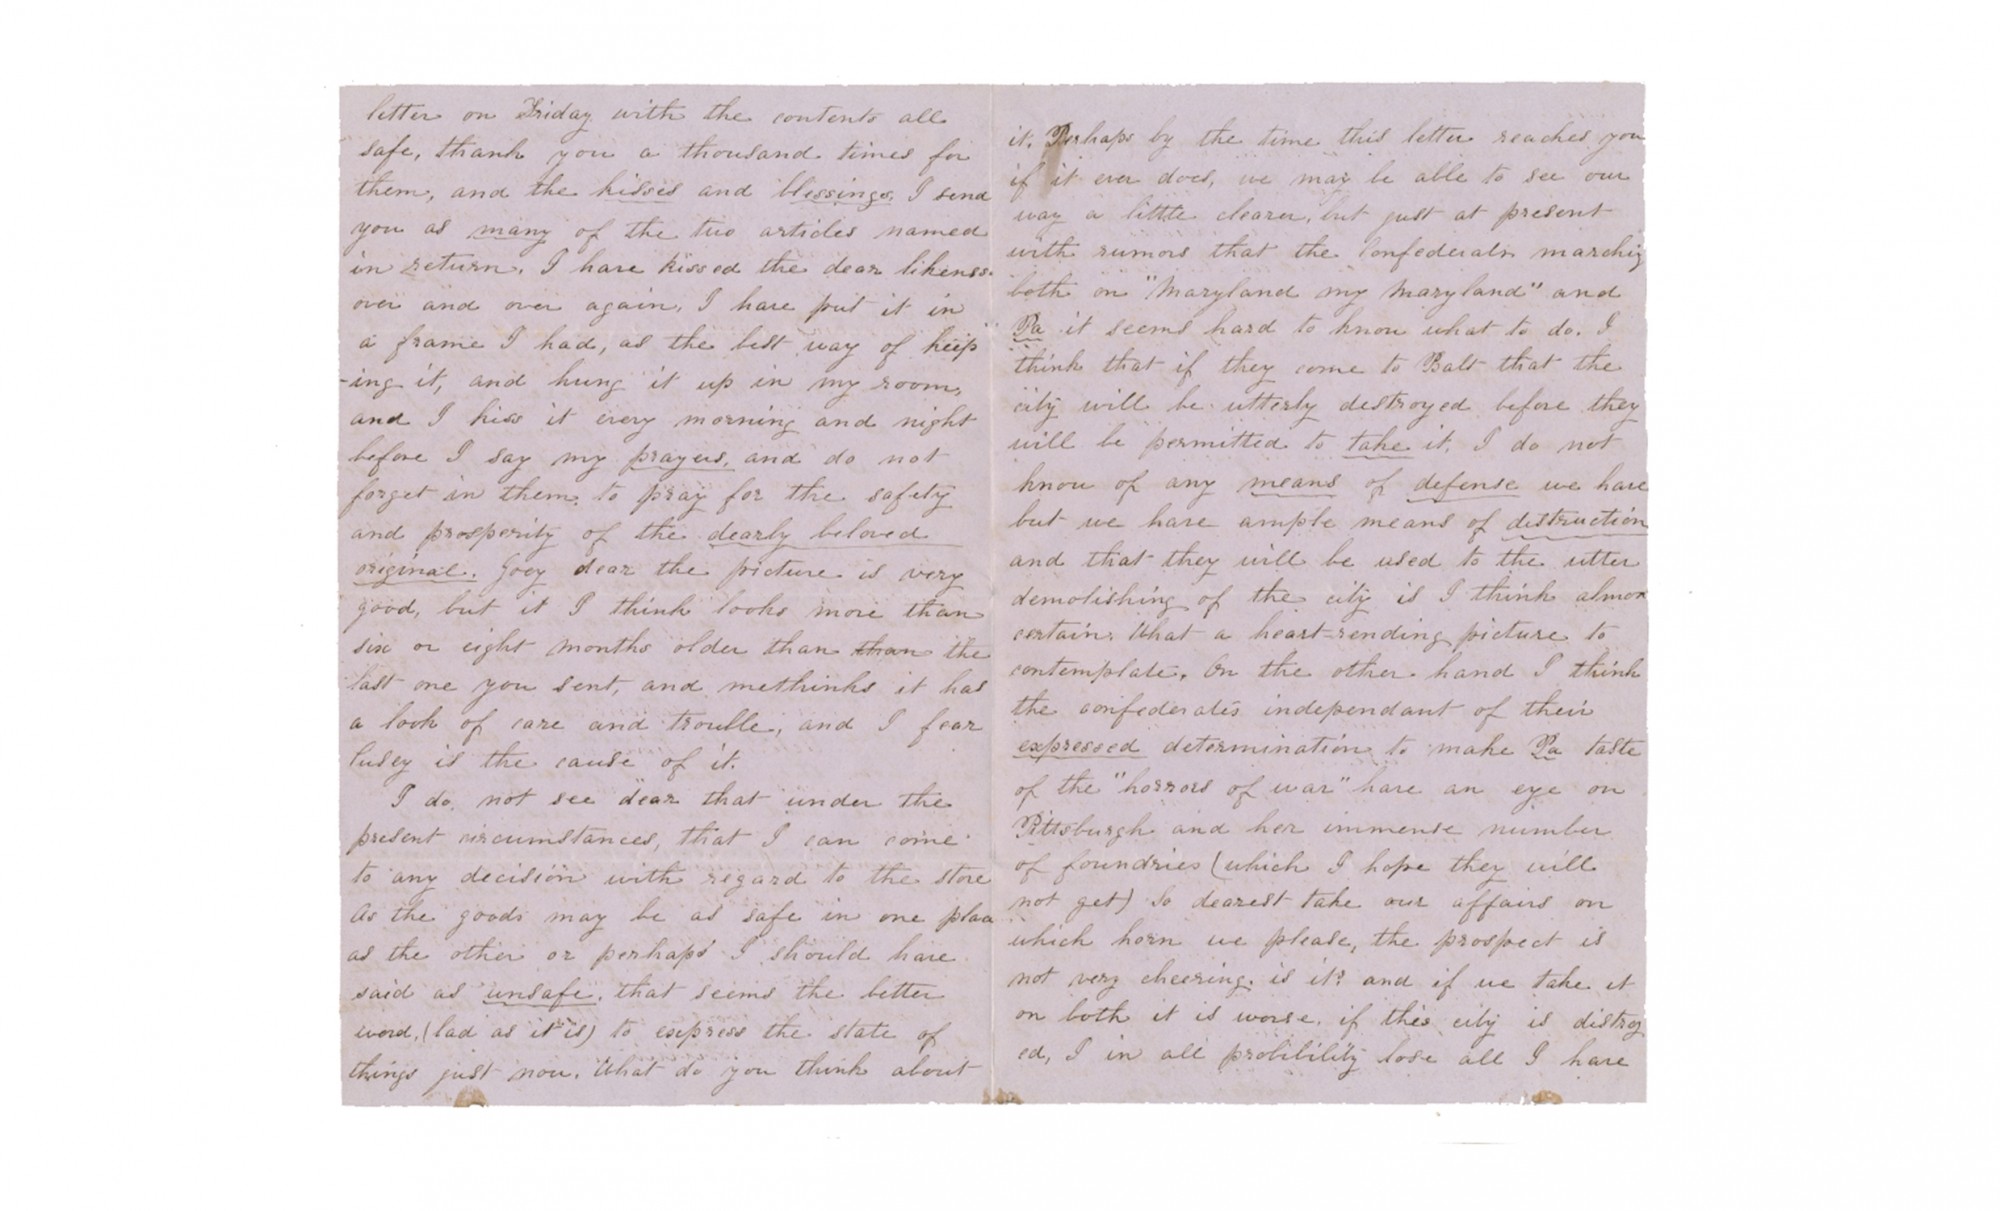 letter on Friday with the contents all
safe, thank you a thousand times for
them, and the kisses and blessings, I send
you as many of the two articles named
in return. I have kissed the dear likeness
over and over again, I have put it in
a frame I had, as the best way of keep
-ing it, and hung it up in my room,
and I kiss it every morning and night
before I say my prayers, and do not
forget in them, to pray for the safety
and prosperity of the dearly beloved
original. Joey dear the picture is very
good, but it I think looks more than
six or eight months older than than the
last one you sent, and methinks it has
a look of care and trouble, and I fear
is the cause of it.
I do not see dear that under the
present circumstances, that I can come
to any decision with regard to the store
As the goods may be as safe in one place
as the other or perhaps I should have
said as unsafe, that seems the better
word, (lad as it is) to express the state of
things just now. What do you think about
it. Perhaps by the time this letter reaches you
if it ever does, we may be able to see our
way a little clearer, but just at present
with rumors that the Confederates marching
both on "Maryland my Maryland" and
Pa it seems hard to know what to do. I
think that if they come to Balt that the
city will be utterly destroyed before they
will be permitted to take it, I do not
know of any means of defense we have
but we have ample means of distruction
and that they will be used to the utter
demolishing of the city is I think almost
certain. What a heart-rending picture to
contemplate. On the other hand I think
the confederates independant of their
expressed determination to make Pa taste
of the "horrors of war" have an eye on
Pittsburgh and her immense number
of foundries (which I hope they will
not get) So dearest take our affairs on
which horn we please, the prospect is
not very cheering. is it? and if we take it
on both it is worse. if this city is distroy
ed, I in all probibility lose all I have